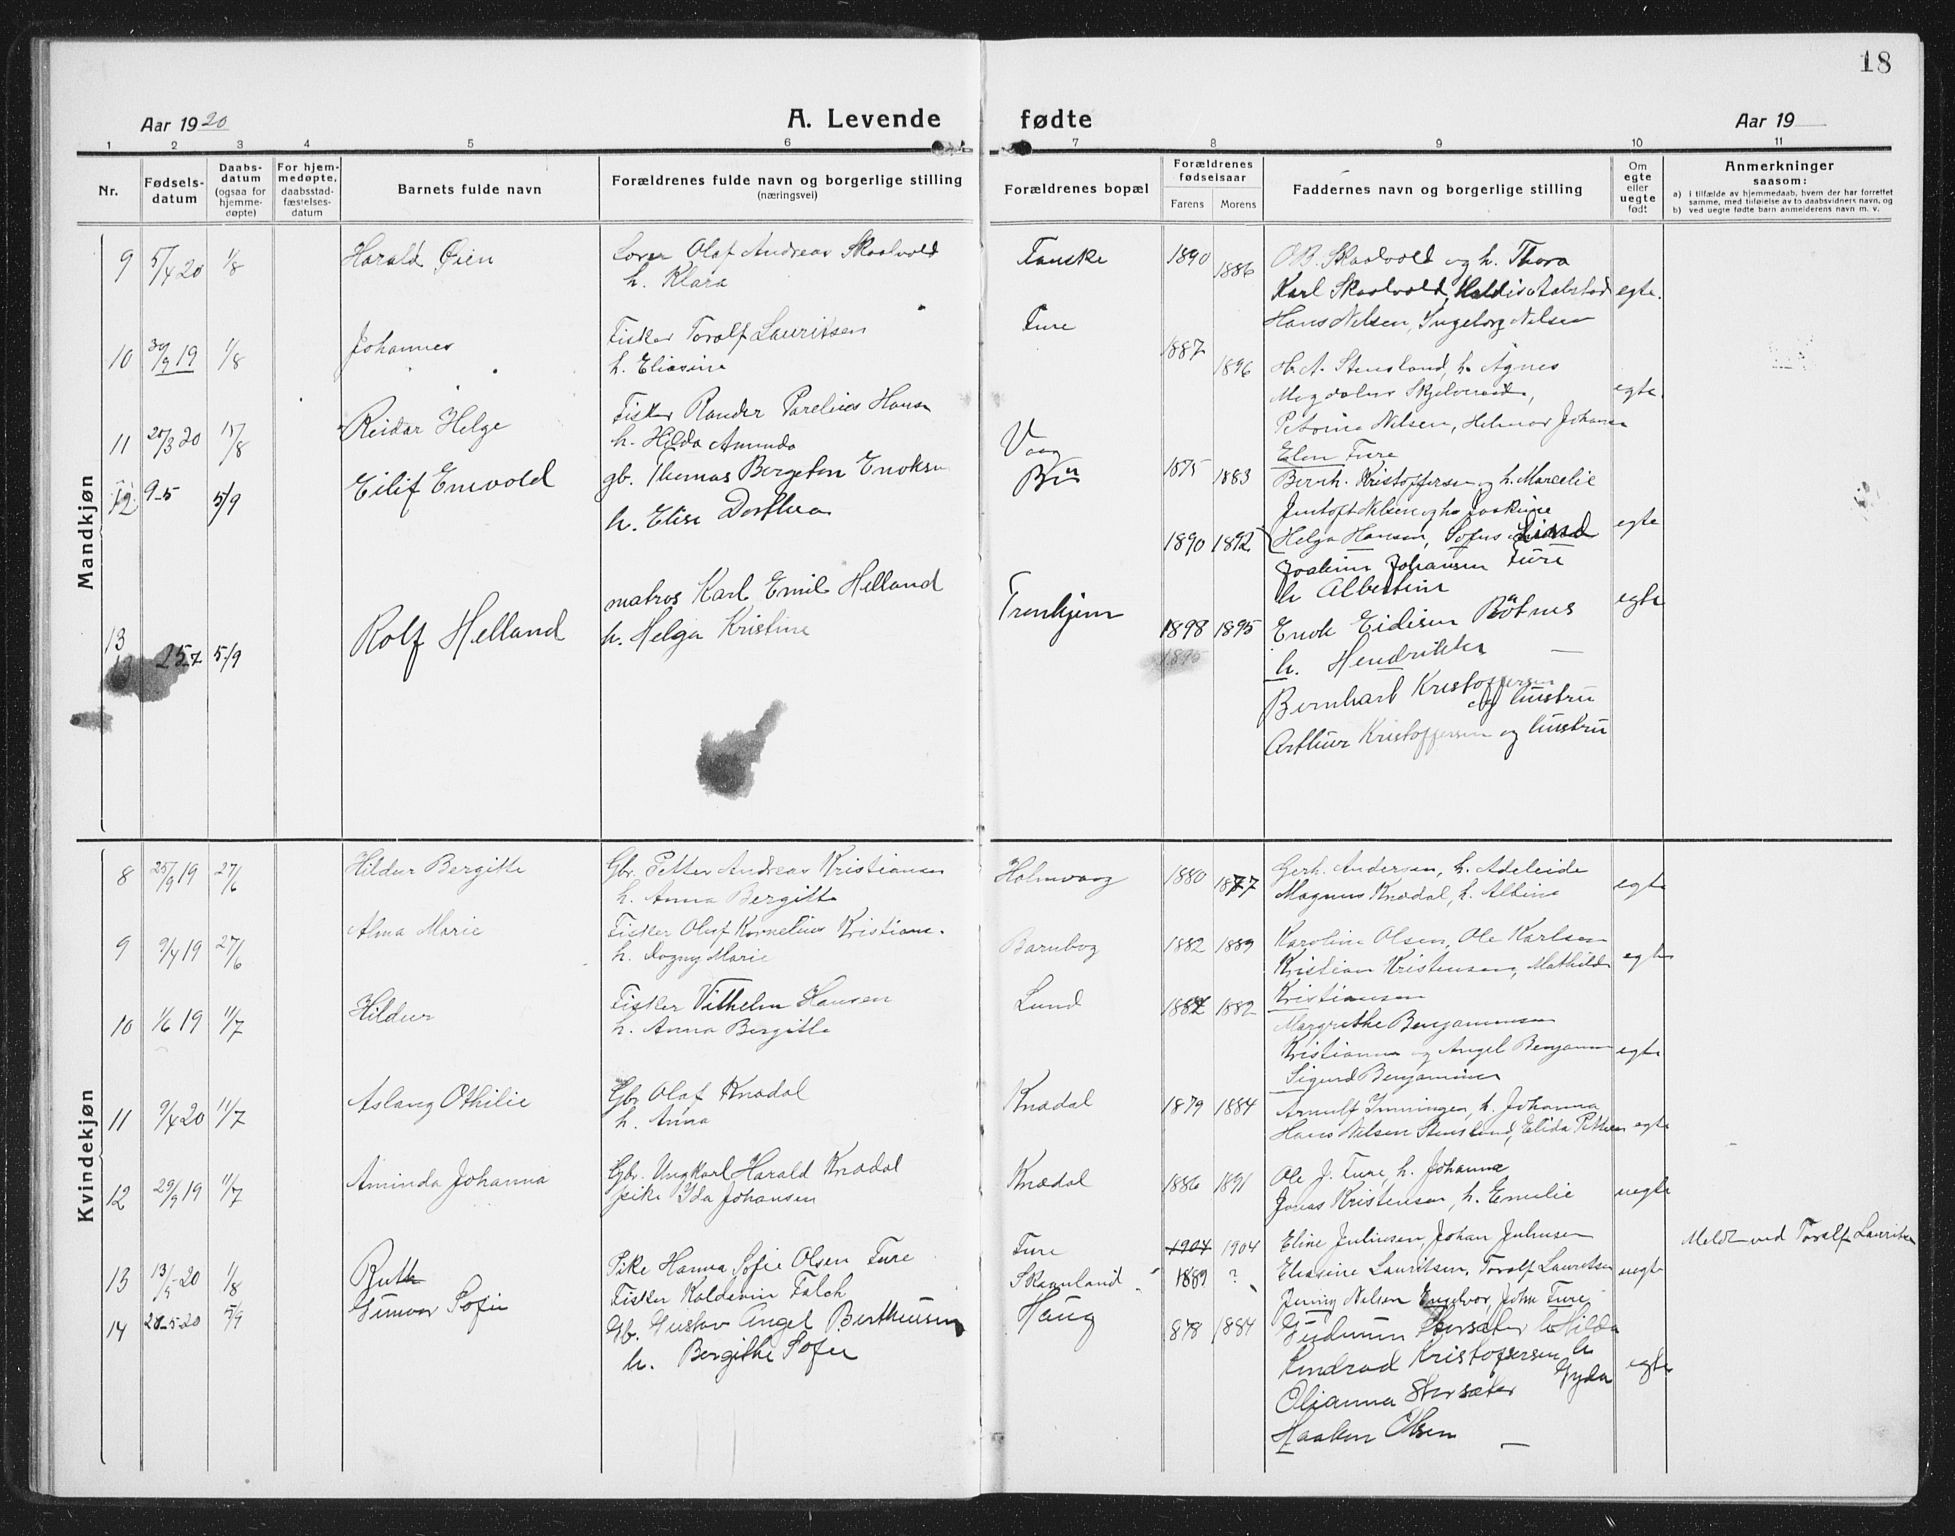 18
Aar 1920
A. Levende fødte
Aar 19
1 2 3 4 5 6 7 8 9 10 11
Nr.
Fødsels-
datum
Daabs-
datum
(ogsaa for
hjemme-
døpte)
For hjem-
medøpte,
daabsstad-
fæstelses-
datum
Barnets fulde navn
Forældrenes fulde navn og borgerlige stilling
(næringsvei)
Forældrenes bopæl
Forældrenes
fødselsaar
Farens Morens
Faddernes navn og borgerlige stilling
Om
egte
eller
uegte
født
Anmerkninger
saasom:
a) i tilfælde av hjemmedaab, hvem der har forrettet
samme, med tilføielse av to daabsvidners navn, og
b) ved uegte fødte barn anmelderens navn m. v.
Mandkjøn
9 5/4 20 1/8 Harald Øien
Olaf Andreas Skaalvold
h. Klara
Fauske 1890 1886
O.B. Skaalvold og h. Thora
Karl Skaalvold, Aabstad egte.
Hans Nelsen, Ingeborg Nelsen
10 30/9 19 1/8 Johannes
Fisker Toralf Lauritsen
h. Eliasine
Ture 1887 1896
H. A. Stensland, h. Agnes
Magdalene egte.
Petrine Nilsen, Helmar Johansen
Elen Ture
11 20/3 20 15/8 Reidar Helge
Fisker Parelius Hansen
h. Hilda Aminda
Vaag 1875 1883
Bernh. Kristoffersen og h. Marcelie
Jentoft Nelsen og h.
Helga Hansen, Sofus Lind egte
12 9-5 5/9 Eilif Enevold
gb. Thomas Bergeton Enoksen
h. Elise Dorthea
Bø 1890 1892
Joakim Johansen Ture
h Albertine
Enok Eidisen Bøtnes egte
h. Hendrikke
13 25-7 5/9 Rolf Helland
matros Karl Emil Helland
h. Helga Kristine
Tronhjem 1898 1895
Bernhart Kristoffersen
og hustru
Arthur Kristoffersen og hustru
Kvindekjøn
8 25/9 19 27/6 Hildur Bergitte
Gbr. Petter Andreas Kristiansen
h. Anna Bergitte
Holmvaag 1880 1877
Gerh. Andersen, h. Adeleide
Magnus Knædal, h. Albine egte
9 9/4 19 27/6 Alma Marie
Fisker Olaf Kornelius Kristians.
h. Dagny Marie
Barnbog 1882 1889
Karoline Olsen, Ole Karlsen
Kristian Kristensen, Mathilde egte
Kristiansen
10 1/6 19 11/7 Hildur
Fisker Vilhelm Hansen
h. Anna Bergitte
Lund 1882
Margrethe Benjaminsen
Kristianna og Angel Benjamin egte
Sigurd Benjaminsen
11 9/4 20 11/7 Aslaug Othilie
Gbr Olaf Knædal
h. Anna
Knædal 1879 1884
Arnulf Inningen, h. Johanna
Hans Nelsen Stensland, Elida Pettersen egte
12 29/9 19 11/7 Aminda Johanna
Gbr. Ungkarl Harald Knædal
pike Ida Johansen
Knædal 1886 1891
Ole J. Ture, h. Johanna
Jonas Kristensen, h. Emelie uegte
13 13/5 20 1/8 Ruth
Pike Hanna Sofie Olsen Ture
Fisker Koldevin Falch
Ture 1904 1904
Skaanland 1889 ?
Eline Juliusen, Johan Juliusen
Eliasine Lauritsen, Toralf Lauritsen uegte
Jenny Nelsen Engelvær, John Ture
Meldt ved Toralf Lauritsen
14 28-5 20 5/9 Gunvor Sofie
Gb. Gustav Angel Bertheusen
h. Bergithe Sofie
Haug 878 1884
Gudmun Storsæter h Hilda
Kondrad Kristoffersen h Gyda egte
Olianna Storsæter
Haakon Olsen